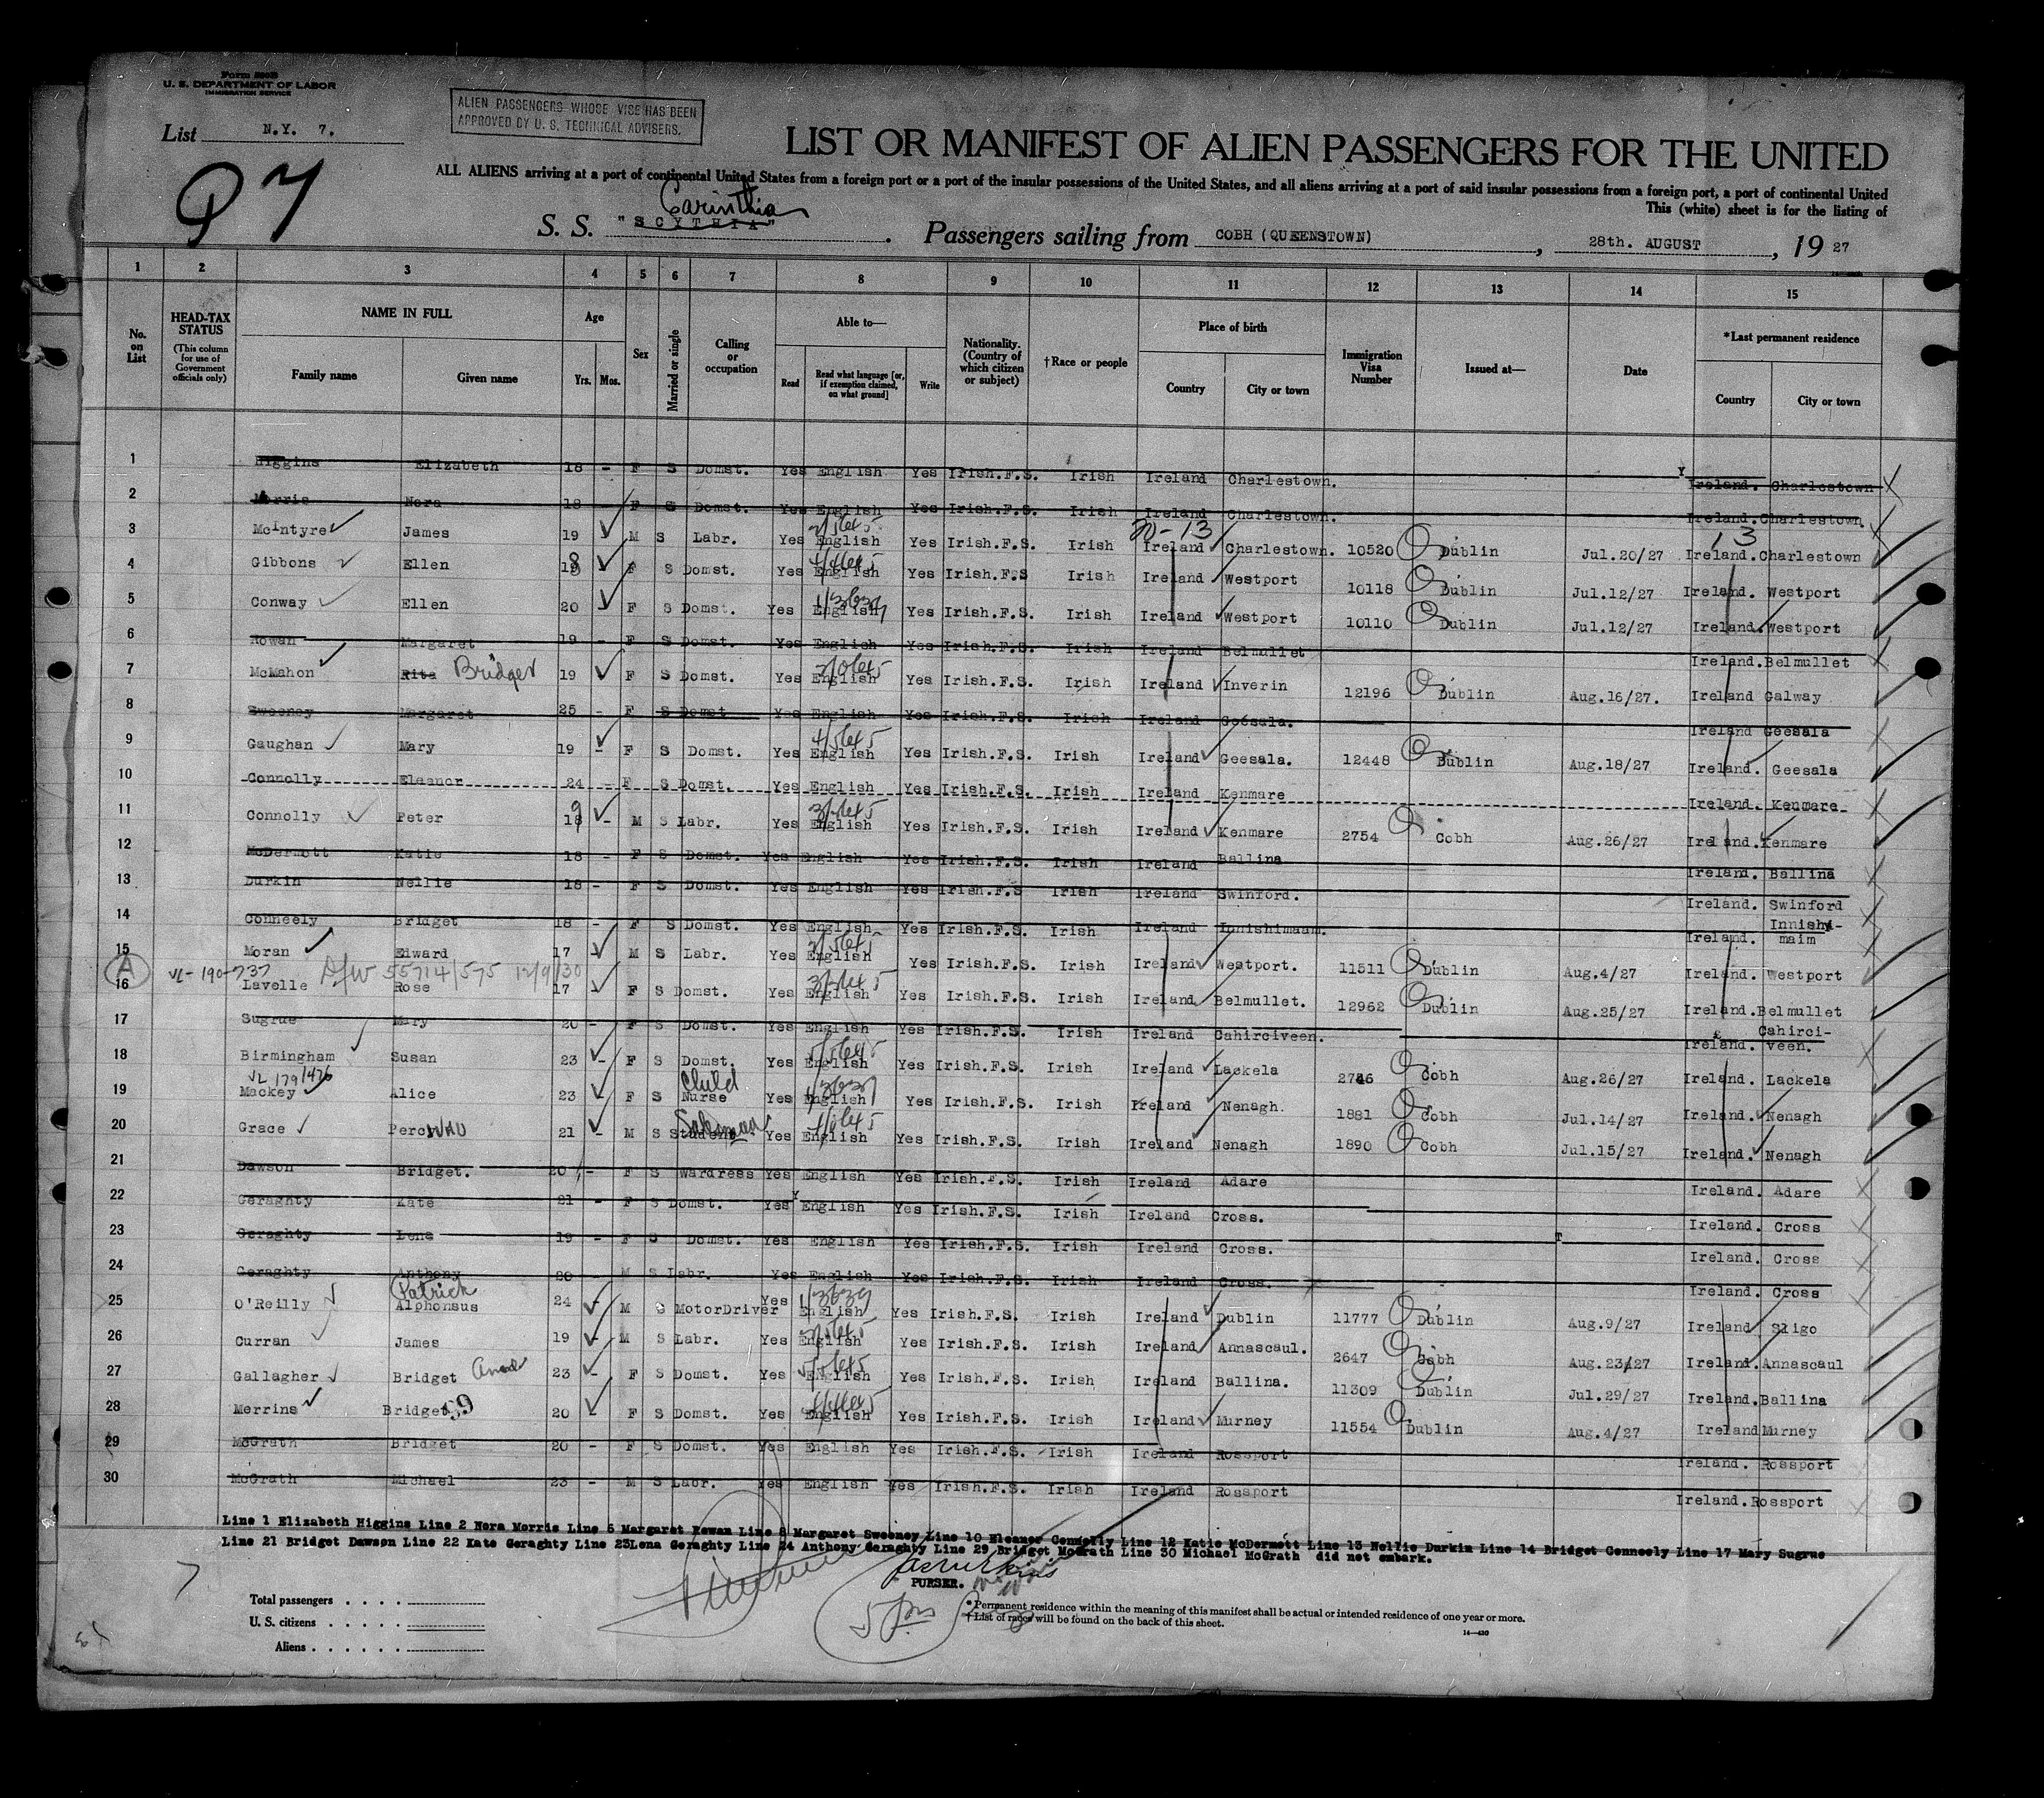 Form 500B
U. S. DEPARTMENT OF LABOR
IMMIGRATION SERVICE
List N.Y. 7.
ALIEN PASSENGERS WHOSE VISE HAS BEEN
APPROVED BY U. S. TECHNICAL ADVISERS.
97
LIST OR MANIFEST OF ALIEN PASSENGERS FOR THE UNITED
ALL ALIENS arriving at a port of continental United States from a foreign port or a port of the insular possessions of the United States, and all aliens arriving at a port of said insular possessions from a foreign port, a port of continental United
This (white) sheet is for the listing of
Carinthia
S. S. "SCYTHIA". Passengers sailing from COBH (QUEENSTOWN), 28th. AUGUST, 19 27
1 2 3 4 5 6 7 8 9 10 11 12 13 14 15
No. on List
HEAD-TAX STATUS (This column for use of Government officials only)
NAME IN FULL Family name Given name
Age Yrs. Mos.
Sex
Married or single
Calling or occupation
Able to— Read Read what language [or, if exemption claimed, on what ground] Write
Nationality. (Country of which citizen or subject)
†Race or people
Place of birth Country City or town
Immigration Visa Number
Issued at—
Date
*Last permanent residence Country City or town
1 Higgins Elizabeth 18 - F S Domst. Yes English Yes Irish.F.S. Irish Ireland Charlestown. Ireland. Charlestown
2 Morris Nora 18 - F S Domst. Yes English Yes Irish.F.S. Irish Ireland Charlestown. Ireland. Charlestown
20-13 13
3 McIntyre James 19 M S Labr. Yes English Yes Irish.F.S. Irish Ireland Charlestown. 10520 Dublin Jul.20/27 Ireland. Charlestown
4 Gibbons Ellen 18 F S Domst. Yes English Yes Irish.F.S Irish Ireland Westport 10118 Dublin Jul.12/27 Ireland. Westport
5 Conway Ellen 20 F S Domst. Yes English Yes Irish.F.S. Irish Ireland Westport 10110 Dublin Jul.12/27 Ireland. Westport
6 Rowan Margaret 19 - F S Domst. Yes English Yes Irish.F.S. Irish Ireland Belmullet Ireland. Belmullet
7 McMahon Rita Bridget 19 F S Domst. Yes English Yes Irish.F.S. Irish Ireland Inverin 12196 Dublin Aug.16/27. Ireland Galway
8 Sweeney Margaret 25 - F S Domst Yes English Yes Irish.F.S. Irish Ireland Geesala. Ireland Geesala
9 Gaughan Mary 19 - F S Domst. Yes English Yes Irish.F.S. Irish Ireland Geesala. 12448 Dublin Aug.18/27 Ireland. Geesala
10 Connolly Eleanor 24 - F S Domst. Yes English Yes Irish.F.S. Irish Ireland Kenmare Ireland. Kenmare
11 Connolly Peter 18 9 - M S Labr. Yes English Yes Irish.F.S. Irish Ireland Kenmare 2754 Cobh Aug.26/27 Ireland. Kenmare
12 McDermott Katie 18 - F S Domst. Yes English Yes Irish.F.S. Irish Ireland Ballina Ireland. Ballina
13 Durkin Nellie 18 - F S Domst. Yes English Yes Irish.F.S Irish Ireland Swinford. Ireland. Swinford
14 Conneely Bridget 18 - F S Domst. Yes English Yes Irish.F.S. Irish Ireland Innishimaan. Ireland. Innishi-maim
15 Moran Edward 17 M S Labr. Yes English Yes Irish.F.S. Irish Ireland Westport. 11511 Dublin Aug.4/27 Ireland. Westport
A VL-190-737 55714/575 12/9/30
16 Lavelle Rose 17 F S Domst. Yes English Yes Irish.F.S. Irish Ireland Belmullet. 12962 Dublin Aug.25/27 Ireland. Belmullet
17 Sugrue Mary 20 - F S Domst. Yes English Yes Irish.F.S. Irish Ireland Cahirciveen. Ireland. Cahirci-veen.
18 Birmingham Susan 23 - F S Domst. Yes English Yes Irish.F.S. Irish Ireland Lackela 2746 Cobh Aug.26/27 Ireland. Lackela
VL 179/476
19 Mackey Alice 23 - F S Child Nurse Yes English Yes Irish.F.S. Irish Ireland Nenagh. 1881 Cobh Jul.14/27 Ireland. Nenagh
20 Grace Percival 21 - M S Student Salesman Yes English Yes Irish.F.S. Irish Ireland Nenagh 1890 Cobh Jul.15/27 Ireland. Nenagh
21 Dawson Bridget. 20 - F S Wardress Yes English Yes Irish.F.S. Irish Ireland Adare Ireland. Adare
22 Geraghty Kate 21 - F S Domst. Yes English Yes Irish.F.S. Irish Ireland Cross. Ireland. Cross
23 Geraghty Lena 19 - F S Domst. Yes English Yes Irish.F.S. Irish Ireland Cross. Ireland. Cross
24 Geraghty Anthony 20 M S Labr. Yes English Yes Irish.F.S. Irish Ireland Cross. Ireland. Cross
25 O'Reilly Patrick Alphonsus 24 - M S MotorDriver Yes English Yes Irish.F.S. Irish Ireland Dublin 11777 Dublin Aug.9/27 Ireland Sligo
26 Curran James 19 - M S Labr. Yes English Yes Irish.F.S. Irish Ireland Annascaul. 2647 Cobh Aug.23/27 Ireland. Annascaul
27 Gallagher Bridget 23 - F S Domst. Yes English Yes Irish.F.S. Irish Ireland Ballina. 11309 Dublin Jul.29/27 Ireland. Ballina
28 Merrins Bridget 99 20 - F S Domst. Yes English Yes Irish.F.S. Irish Ireland Murney 11554 Dublin Aug.4/27 Ireland Murney
29 McGrath Bridget 20 - F S Domst. Yes English Yes Irish.F.S. Irish Ireland Rossport Ireland. Rossport
30 McGrath Michael 23 - M S Labr. Yes English Yes Irish.F.S. Irish Ireland Rossport Ireland. Rossport
Line 1 Elizabeth Higgins Line 2 Nora Morris Line 6 Margaret Rowan Line 8 Margaret Sweeney Line 10 Eleanor Connolly Line 12 Katie McDermott Line 13 Nellie Durkin Line 14 Bridget Conneely Line 17 Mary Sugrue
Line 21 Bridget Dawson Line 22 Kate Geraghty Line 23 Lena Geraghty Line 24 Anthony Geraghty Line 29 Bridget McGrath Line 30 Michael McGrath did not embark.
PURSER.
Total passengers
U. S. citizens
Aliens
*Permanent residence within the meaning of this manifest shall be actual or intended residence of one year or more.
†List of races will be found on the back of this sheet.
14—430